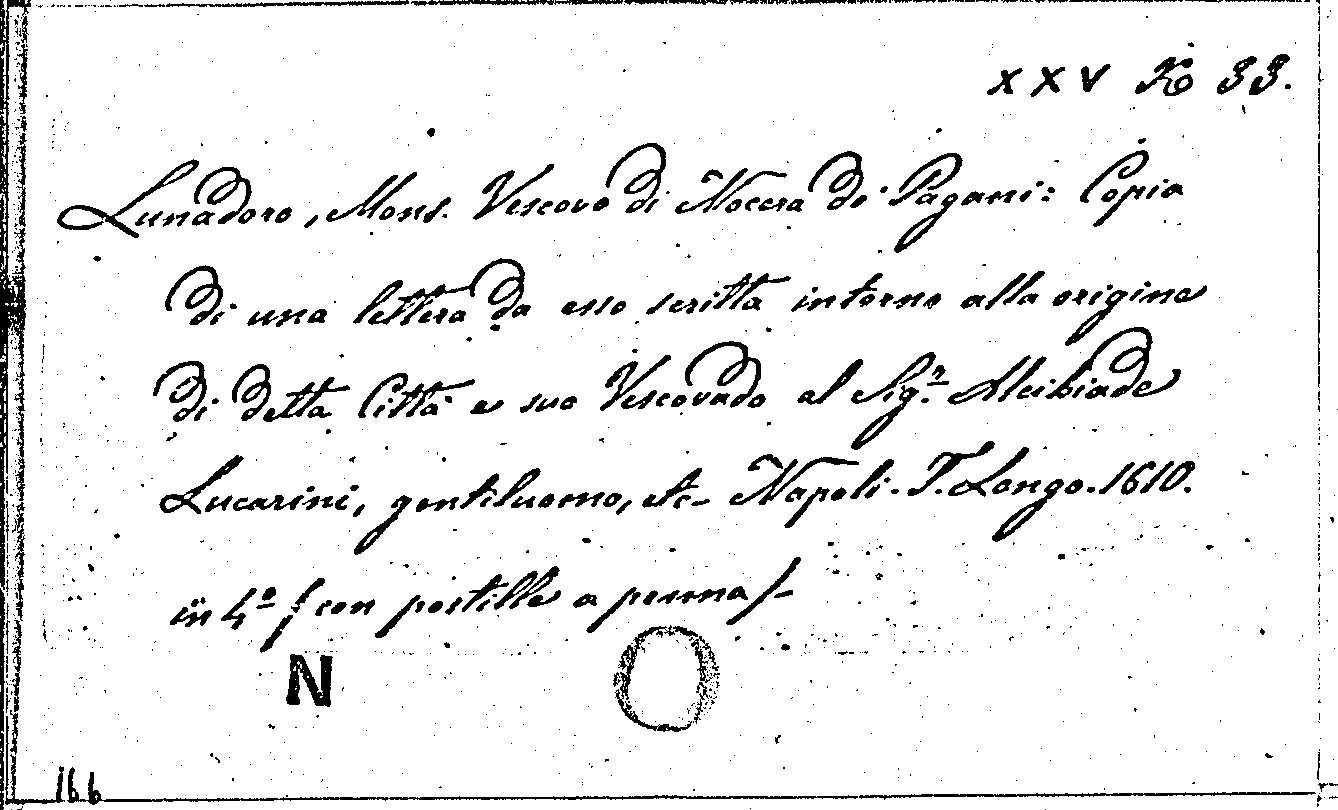 XXV K 33.
Lunadoro, Mons. Vescovo di Nocera de' Pagani: Copia
di una lettera da esso scritta intorno alla origine
di detta Città e suo Vescovado al Sigr. Alcibiade
Lucarini, gentiluomo, etc– Napoli. T. Longo. 1610.
in 4º (con postille a penna)–
N
166